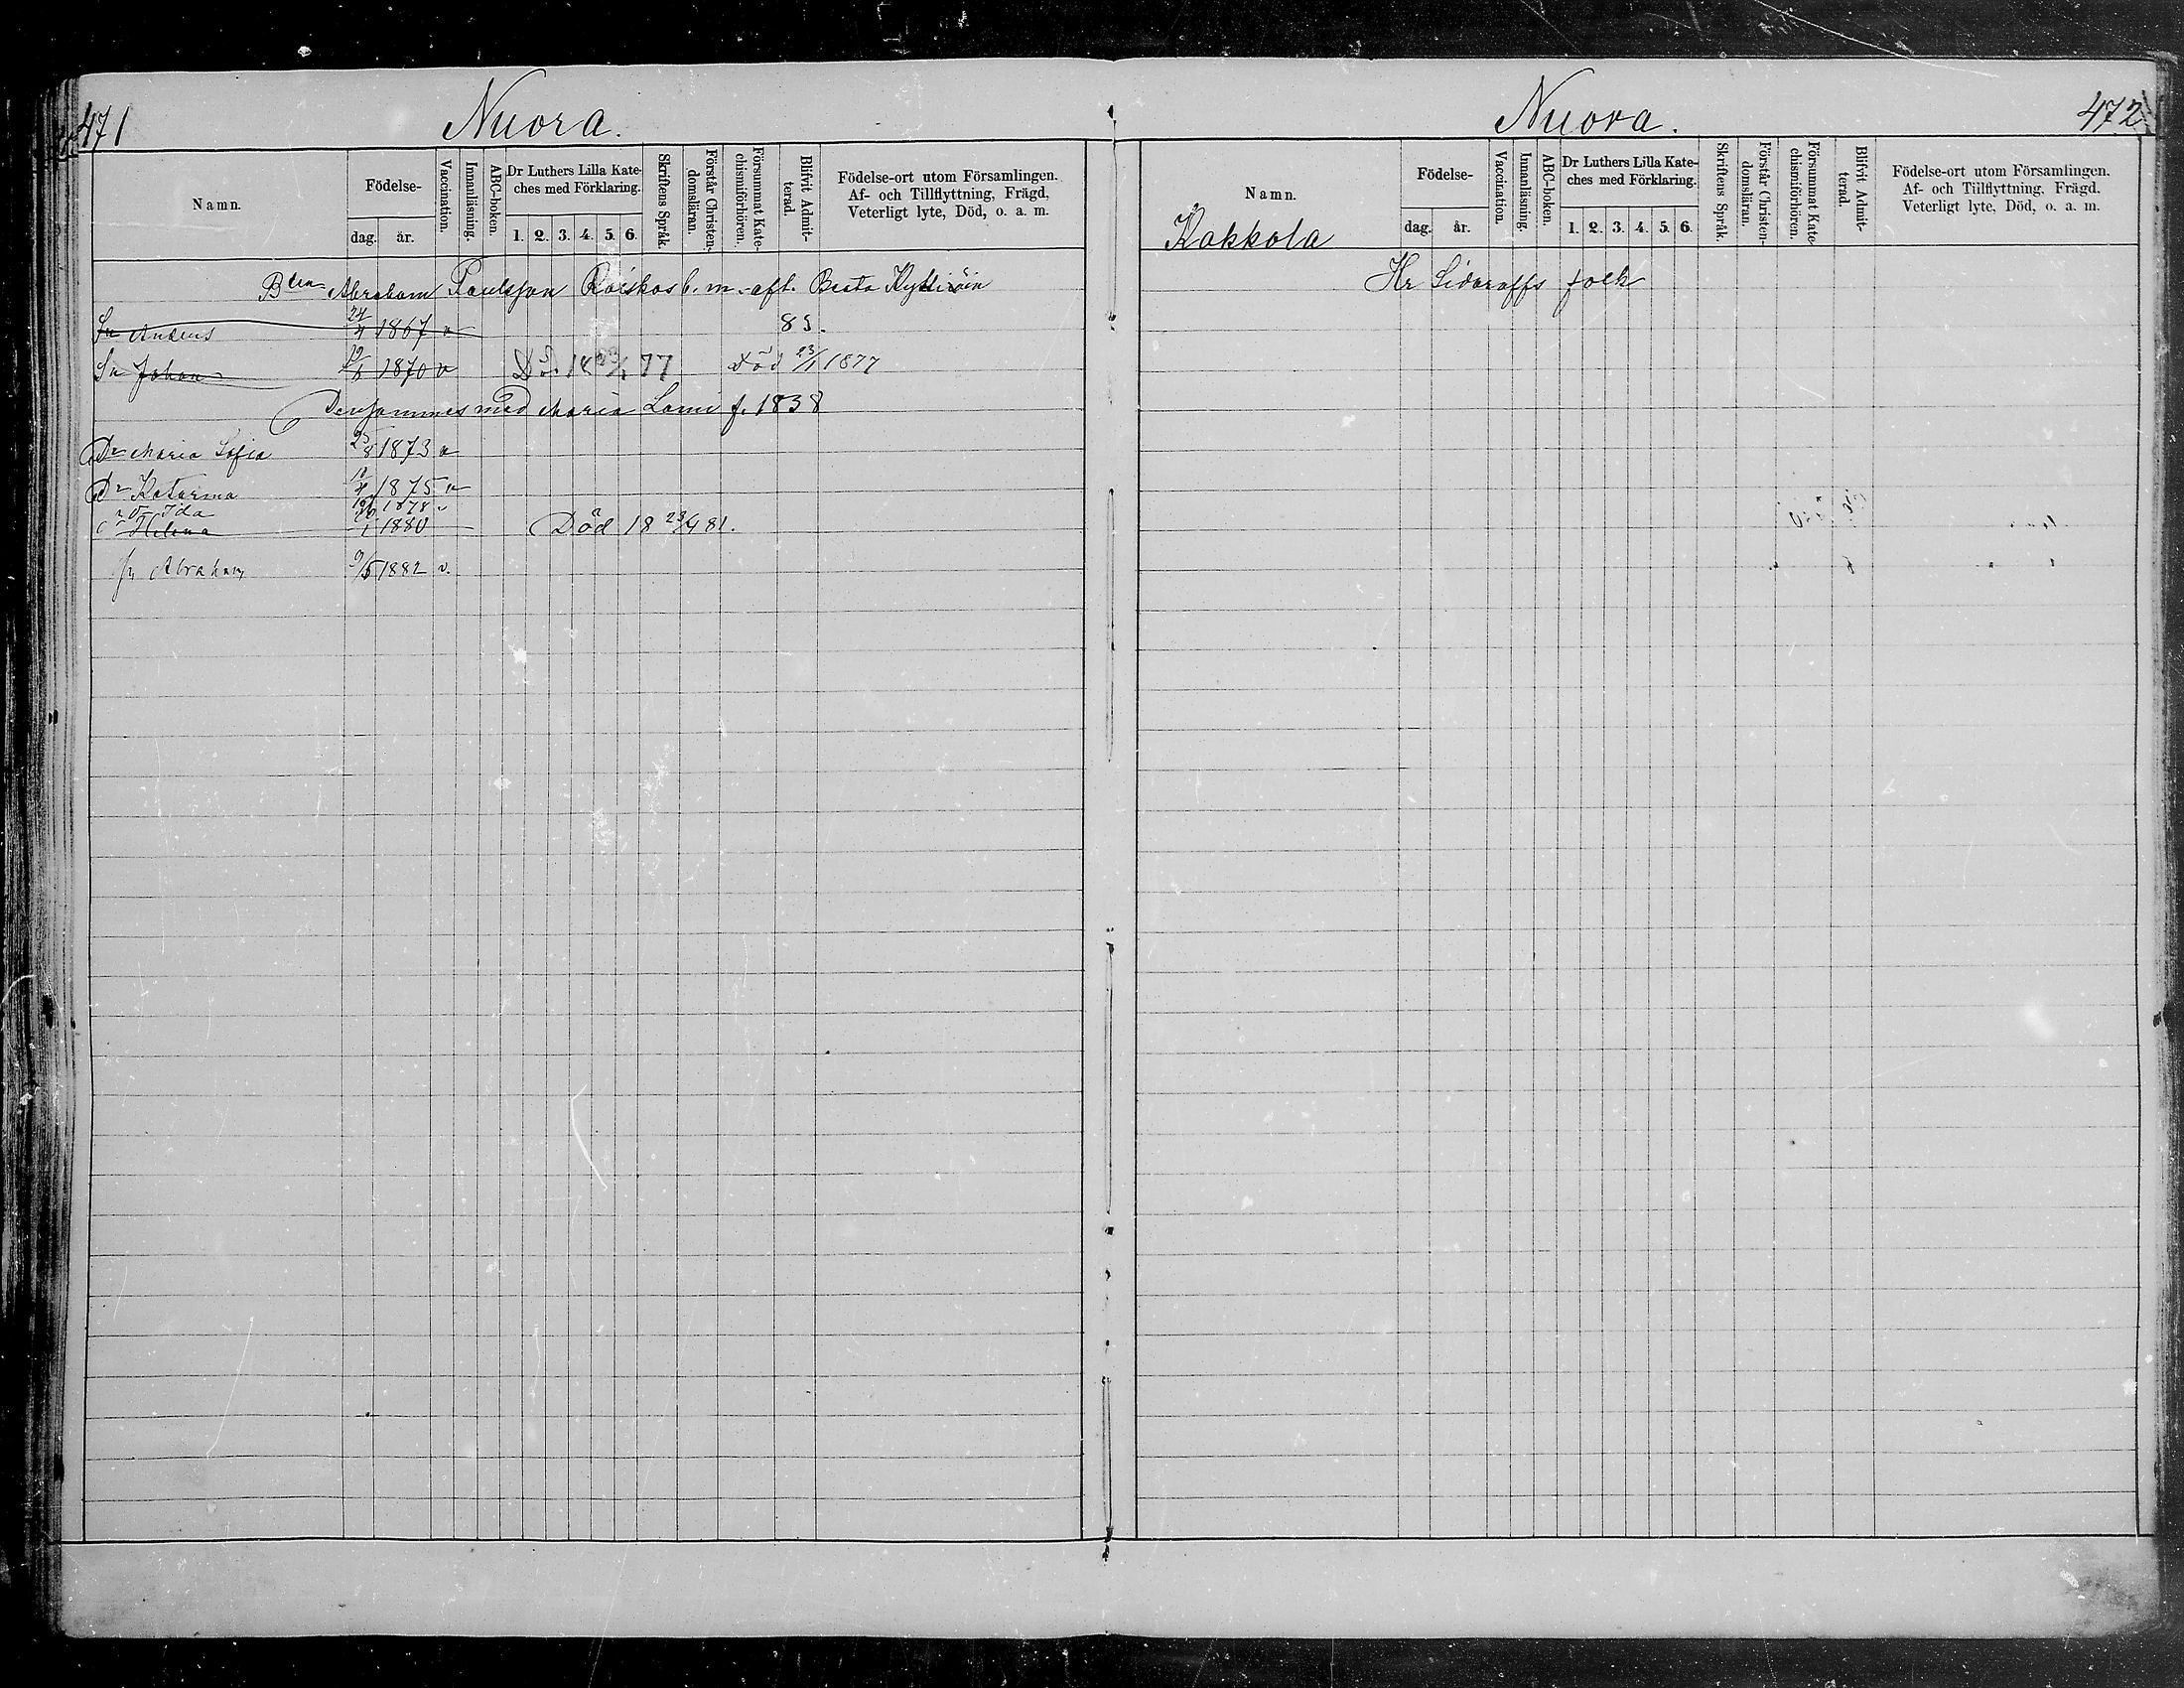 471
Nuora.
Namn.
Födelse-
dag.
år.
Vaccination.
Innanläsning.
ABC-boken.
Dr Luthers Lilla Kate-
ches med Förklaring.
1. 2. 3. 4. 5. 6.
Skriftens Språk.
Förstår Christen-
domsläran.
Försummat Kate-
chismiförhören.
Blifvit Admit-
terad.
Födelse-ort utom Församlingen.
Af- och Tillflyttning, Frägd,
Veterligt lyte, Död, o. a. m.
Abraham Paulsson Raiskas b. m. afl. Beata
Sn Anders 24/4 1867 v 85.
Sn Johan 1870 v Död 18 23/1 77 död 23/1 1877
Densammes med Maria Lami f. 1838
Dr Maria Sofia 25/8 1873 v
Dr Katarina 1875 v
Dr Ida 1878 v
Helena 1880 Död 18 23/4 81.
Sn Abraham 9/5 1882 v.
Nuora.
472
Namn.
Kakkola
Födelse-
dag.
år.
Vaccination.
Innanläsning.
ABC-boken.
Dr Luthers Lilla Kate-
ches med Förklaring.
1. 2. 3. 4. 5. 6.
Skriftens Språk.
Förstår Christen-
domsläran.
Försummat Kate-
chismiförhören.
Blifvit Admit-
terad.
Födelse-ort utom Församlingen.
Af- och Tillflyttning, Frägd.
Veterligt lyte, Död, o. a. m.
Hr Sidoroffs folk